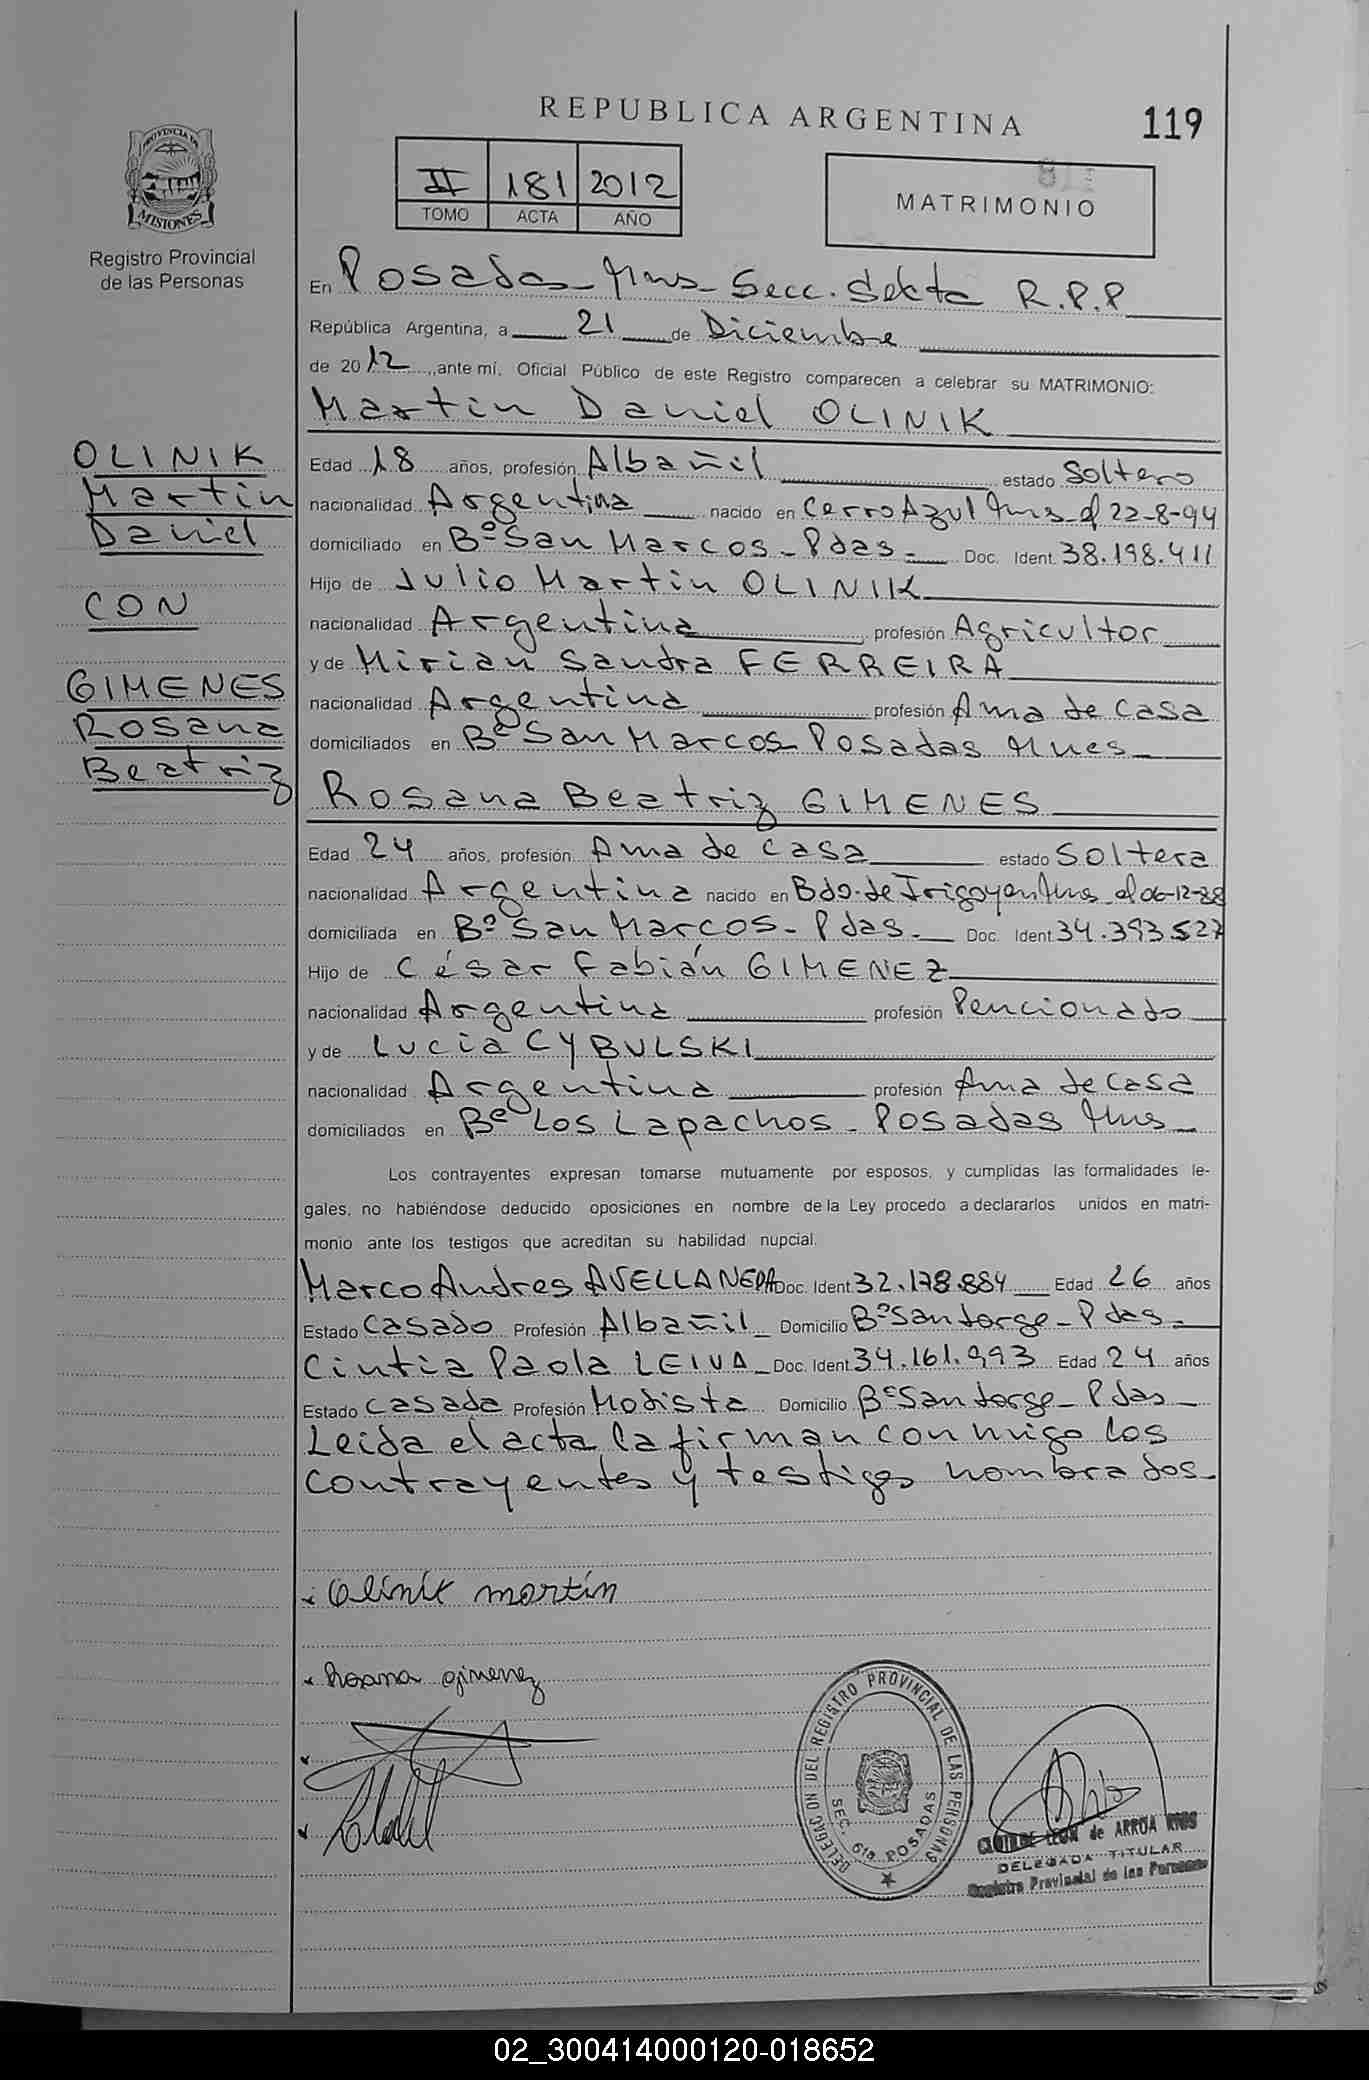 REPUBLICA ARGENTINA
119
PROVINCIA DE
MISIONES
Registro Provincial
de las Personas
II 181 2012
TOMO ACTA AÑO
MATRIMONIO
En Posadas - Mns - Secc. Sekta R.P.P
República Argentina, a 21 de Diciembre
de 2012, ante mí, Oficial Público de este Registro comparecen a celebrar su MATRIMONIO:
Martin Daniel OLINIK
OLINIK
Martin
Daniel
CON
GIMENES
Rosana
Beatriz
Edad 18 años, profesión Albañil estado Soltero
nacionalidad Argentina nacido en Cerro Azul Mns - el 22-8-94
domiciliado en Bº San Marcos - Pdas - Doc. Ident. 38.198.411
Hijo de Julio Martin OLINIK
nacionalidad Argentina profesión Agricultor
y de Mirian Sandra FERREIRA
nacionalidad Argentina profesión Ama de casa
domiciliados en Bº San Marcos Posadas Mnes
Rosana Beatriz GIMENES
Edad 24 años, profesión Ama de casa estado Soltera
nacionalidad Argentina nacido en Bdo. de Irigoyen Mns - el 06-12-88
domiciliada en Bº San Marcos - Pdas - Doc. Ident 34.393.527
Hijo de César Fabián GIMENEZ
nacionalidad Argentina profesión Pencionado
y de Lucia CYBULSKI
nacionalidad Argentina profesión Ama de casa
domiciliados en Bº Los Lapachos - Posadas Mns
Los contrayentes expresan tomarse mutuamente por esposos, y cumplidas las formalidades le-
gales, no habiéndose deducido oposiciones en nombre de la Ley procedo a declararlos unidos en matri-
monio ante los testigos que acreditan su habilidad nupcial.
Marco Andres AVELLANEDA Doc. Ident 32.178.884 Edad 26 años
Estado Casado Profesión Albañil Domicilio Bº San Jorge - Pdas -
Cintia Paola LEIVA Doc. Ident 34.161.993 Edad 24 años
Estado Casada Profesión Modista Domicilio Bº San Jorge - Pdas -
Leida el acta la firman conmigo los
contrayentes y testigos nombrados -
Olinik martín
Rosana gimenez
DELEGACION DEL REGISTRO PROVINCIAL DE LAS PERSONAS
SEC. 6ta POSADAS
CLOTILDE LEON de ARRUA RIOS
DELEGADA TITULAR
Registro Provincial de las Personas
02_300414000120-018652